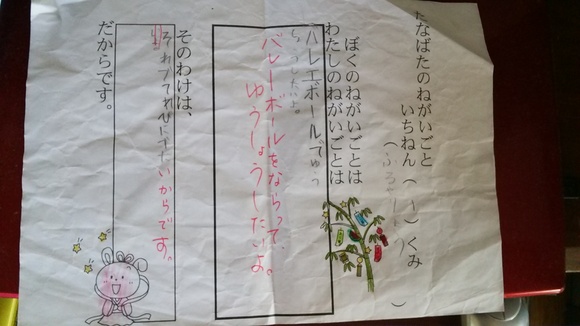 たなばたのねがいごと
いちねん( い )くみ
ぼくのねがいごとは
わたしのねがいごとは
バレエボールでゆう
しょうしたいよ。
バレーボールをならって、
ゆうしょうしたいよ。
そのわけは、
それでてれびにでたいからです。
だからです。